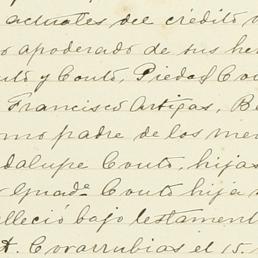 actuales del crédito
o apoderado de sus her
uto y Couto, Piedad Cou
Francisco Artigas, Be
omo padre de los men
dalupe Couto, hijas
Guad.ª Couto hija
lleció bajo testament
A. Covarrubias el 15.